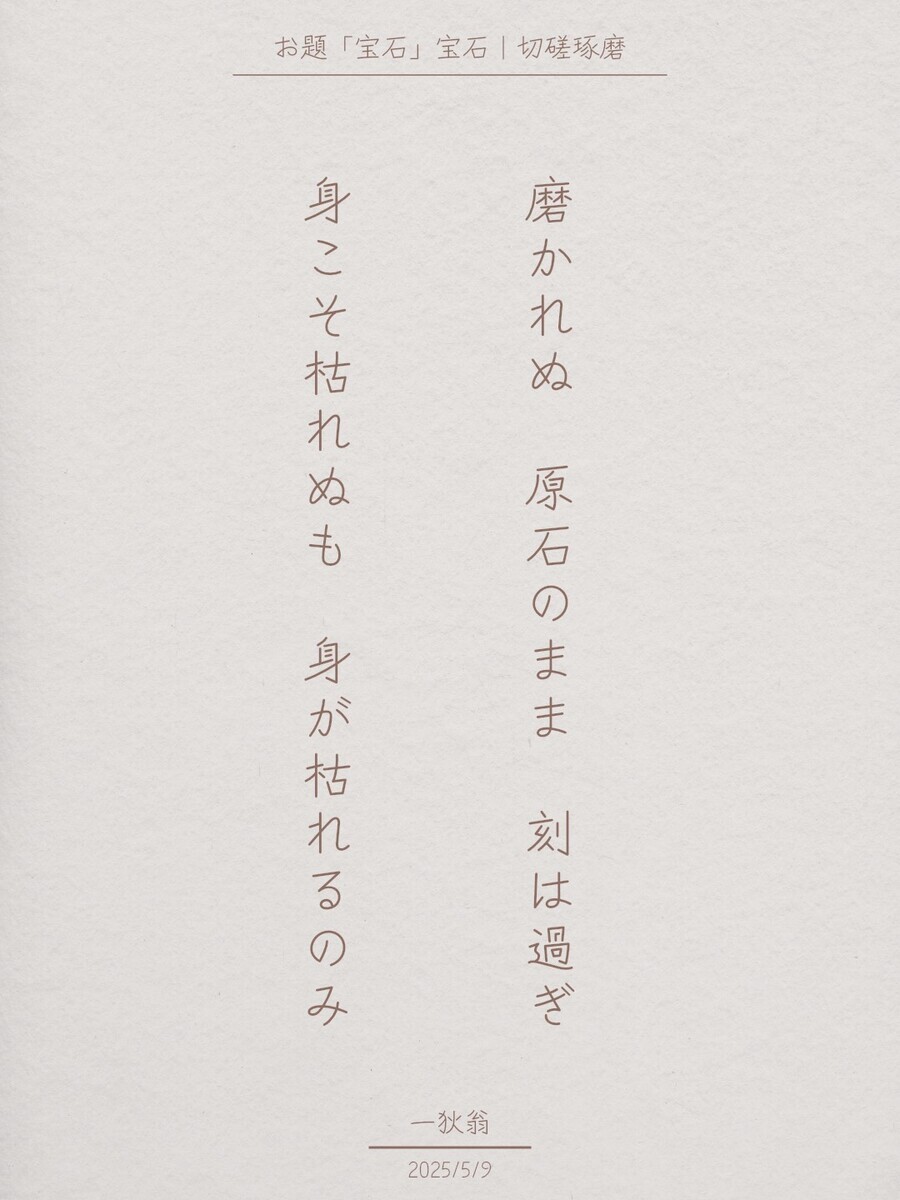 お題「宝石」宝石｜切磋琢磨
磨かれぬ　原石のまま　刻は過ぎ
身こそ枯れぬも　身が枯れるのみ
一狄翁
2025/5/9